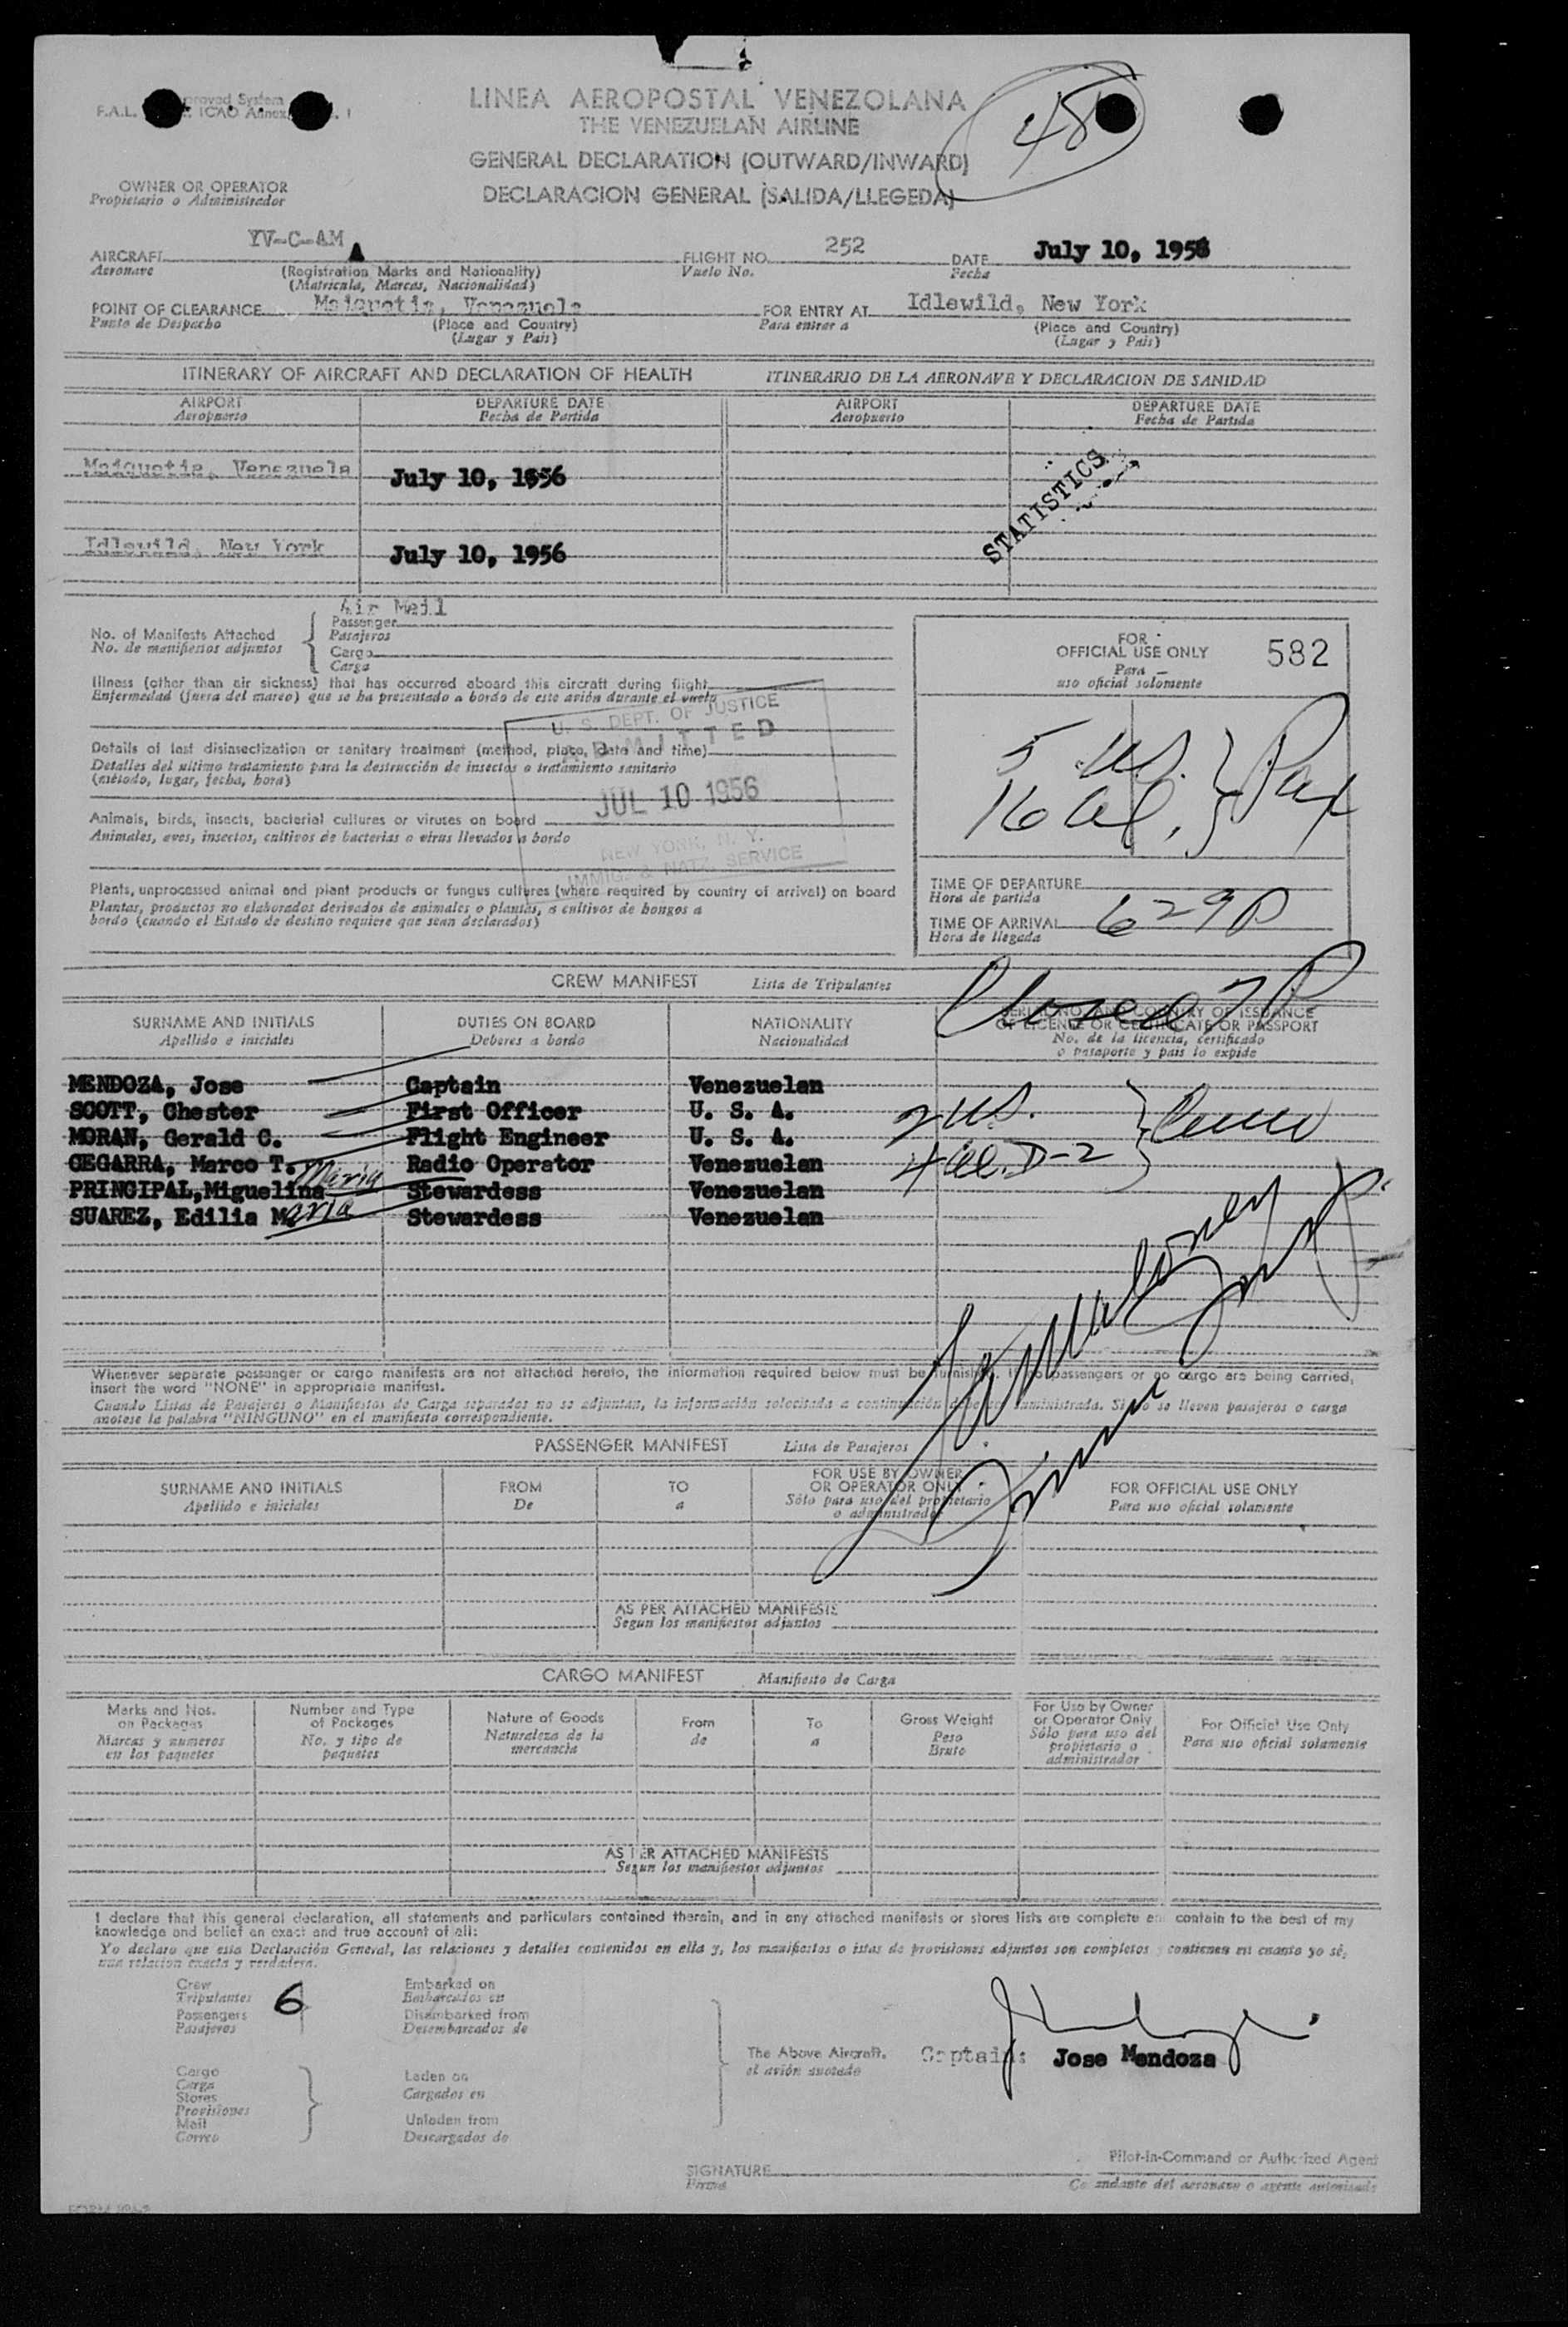 LINEA AEROPOSTAL VENEZOLANA
THE VENEZUELAN AIRLINE
48
GENERAL DECLARATION (OUTWARD/INWARD)
DECLARACION GENERAL (SALIDA/LLEGEDA)
F.A.L. proved System
ICAO Annex 1
OWNER OR OPERATOR
Propietario o Administrador
AIRCRAFT YV-C-AMA FLIGHT NO. 252 DATE July 10, 1956
Aeronave (Registration Marks and Nationality) Vuelo No. Fecha
(Matricula, Marcas, Nacionalidad)
POINT OF CLEARANCE Maiquetia, Venezuela FOR ENTRY AT Idlewild, New York
Punto de Despacho (Place and Country) Para entrar a (Place and Country)
(Lugar y Pais) (Lugar y Pais)
ITINERARY OF AIRCRAFT AND DECLARATION OF HEALTH ITINERARIO DE LA AERONAVE Y DECLARACION DE SANIDAD
AIRPORT DEPARTURE DATE AIRPORT DEPARTURE DATE
Aeropuerto Fecha de Partida Aeropuerto Fecha de Partida
Maiquetia, Venezuela July 10, 1956
STATISTICS
Idlewild, New York July 10, 1956
Air Mail
No. of Manifests Attached Passenger
No. de manifiestos adjuntos Pasajeros
Cargo
Carga
FOR
OFFICIAL USE ONLY 582
Para
uso oficial solomente
Illness (other than air sickness) that has occurred aboard this aircraft during flight
Enfermedad (fuera del mareo) que se ha presentado a bordo de este avión durante el vuelo
U. S. DEPT. OF JUSTICE
ADMITTED
JUL 10 1956
NEW YORK, N. Y.
IMMIG. & NATZ. SERVICE
Details of last disinsectization or sanitary treatment (method, place, date and time)
Detalles del ultimo tratamiento para la destrucción de insectos o tratamiento sanitario
(método, lugar, fecha, hora)
5 U.S. } Pax
16 Al. }
Animals, birds, insects, bacterial cultures or viruses on board
Animales, aves, insectos, cultivos de bacterias o virus llevados a bordo
Plants, unprocessed animal and plant products or fungus cultures (where required by country of arrival) on board
Plantas, productos no elaborados derivados de animales o plantas, o cultivos de hongos a
bordo (cuando el Estado de destino requiere que sean declarados)
TIME OF DEPARTURE
Hora de partida
TIME OF ARRIVAL 629P
Hora de llegada
Closed 7P
CREW MANIFEST Lista de Tripulantes
SURNAME AND INITIALS DUTIES ON BOARD NATIONALITY SERIAL NO. AND COUNTRY OF ISSUANCE
OF LICENCE OR CERTIFICATE OR PASSPORT
Apellido e iniciales Deberes a bordo Nacionalidad No. de la licencia, certificado
o pasaporte y pais lo expide
MENDOZA, Jose Captain Venezuelan
SCOTT, Chester First Officer U. S. A. 2 U.S. } Crew
MORAN, Gerald C. Flight Engineer U. S. A.
CEGARRA, Marco T. Radio Operator Venezuelan 4 Al. D-2 }
PRINCIPAL, Miguelina Maria Stewardess Venezuelan
SUAREZ, Edilia Maria Stewardess Venezuelan
Whenever separate passenger or cargo manifests are not attached hereto, the information required below must be furnished. If no passengers or no cargo are being carried,
insert the word "NONE" in appropriate manifest.
Cuando Listas de Pasajeros o Manifiestos de Carga separados no se adjuntan, la información solecitada a continuación debe ser suministrada. Si no se lleven pasajeros o carga
anotese la palabra "NINGUNO" en el manifiesto correspondiente.
PASSENGER MANIFEST Lista de Pasajeros
SURNAME AND INITIALS FROM TO FOR USE BY OWNER
OR OPERATOR ONLY FOR OFFICIAL USE ONLY
Apellido e iniciales De a Sólo para uso del propietario
o administrador Para uso oficial solamente
AS PER ATTACHED MANIFESTS
Segun los manifiestos adjuntos
CARGO MANIFEST Manifiesto de Carga
Marks and Nos.
on Packages
Marcas y numeros
en los paquetes
Number and Type
of Packages
No. y tipo de
paquetes
Nature of Goods
Naturaleza de la
mercancia
From
de
To
a
Gross Weight
Peso
Bruto
For Use by Owner
or Operator Only
Sólo para uso del
propietario o
administrador
For Official Use Only
Para uso oficial solamente
AS PER ATTACHED MANIFESTS
Segun los manifiestos adjuntos
I declare that this general declaration, all statements and particulars contained therein, and in any attached manifests or stores lists are complete and contain to the best of my
knowledge and belief an exact and true account of all:
Yo declaro que esta Declaración General, las relaciones y detalles contenidos en ella y, los manifiestos o istas de provisiones adjuntos son completos y contienen en cuanto yo sé,
una relacion exacta y verdadera.
Crew
Tripulantes 6
Passengers
Pasajeros
Embarked on
Embarcados en
Disembarked from
Desembarcados de
Cargo
Carga
Stores
Provisiones
Mail
Correo
Laden on
Cargados en
Unladen from
Descargados de
The Above Aircraft.
el avión anotado
Captain: Jose Mendoza
Pilot-in-Command or Authorized Agent
SIGNATURE
Firma Comandante del aeronave o agente autorizado
FORM